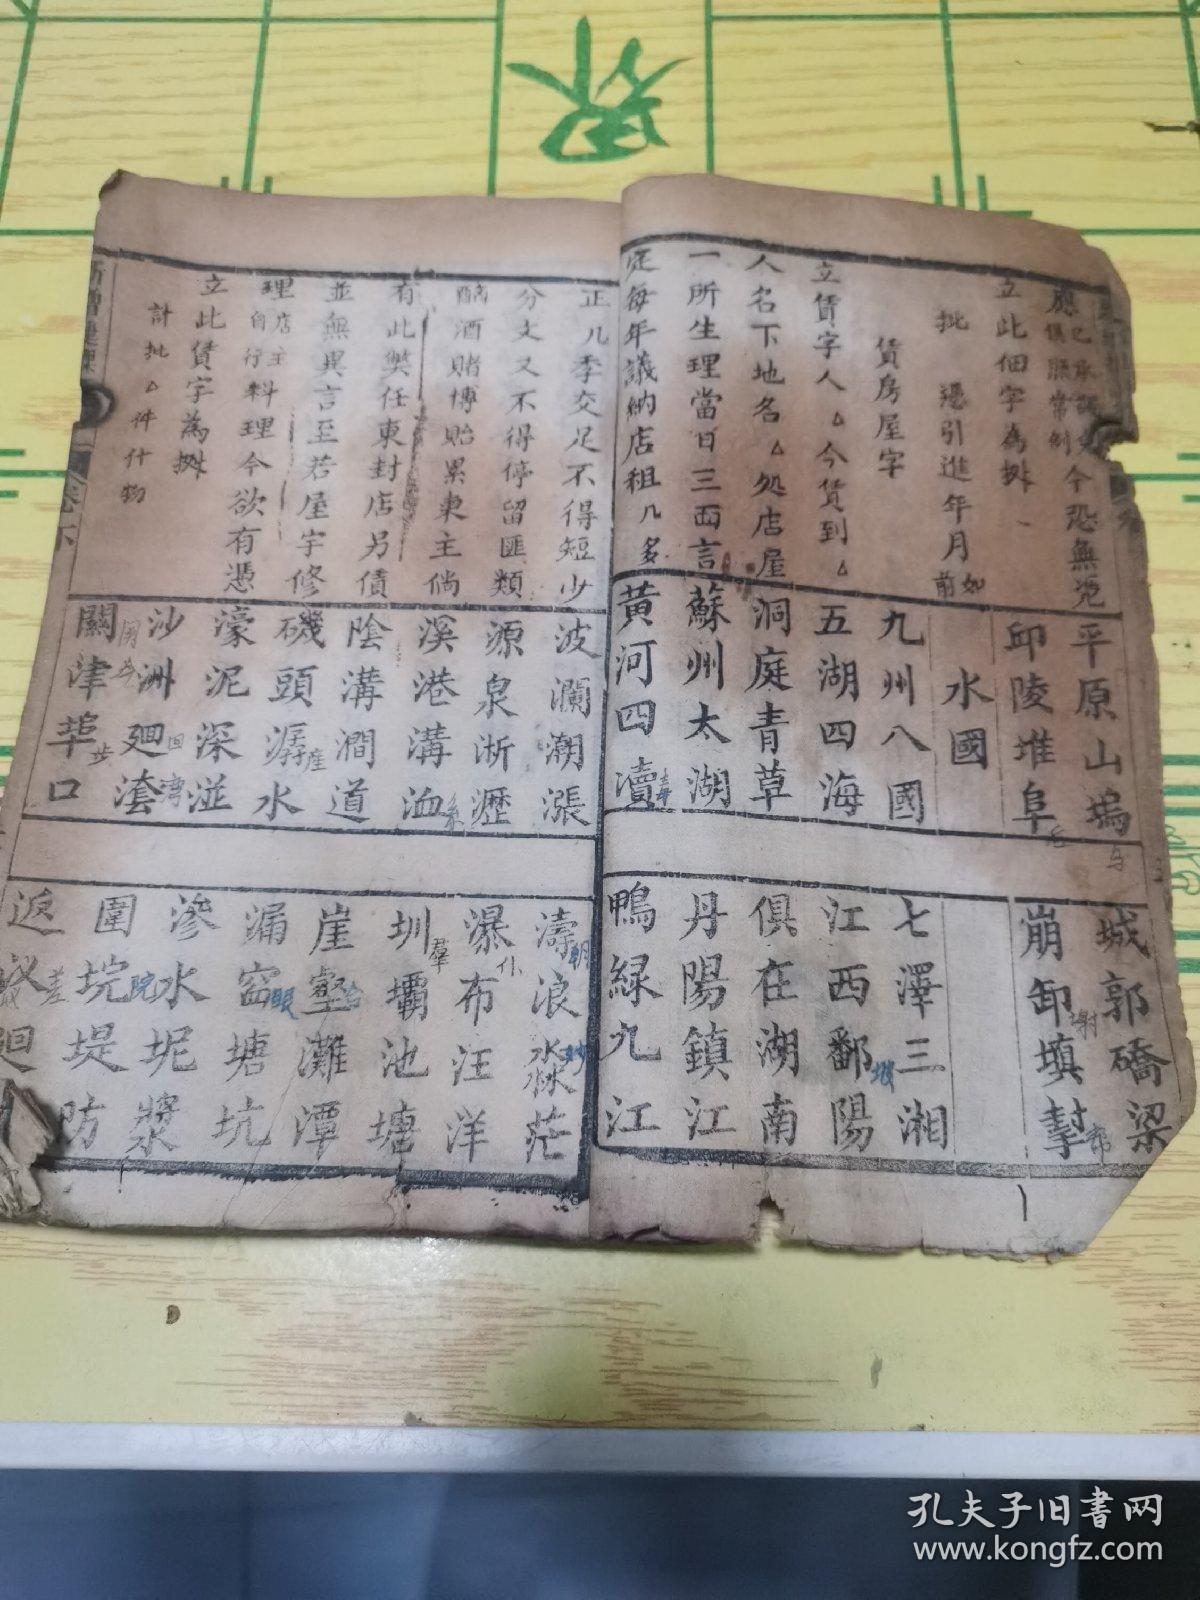 應
俱照常例
今恐無憑
立此佃字為㨿
批
憑引進年月如前
賃房屋字
立賃字人△今賃到△
人名下地名△処店屋
一所生理當日三面言
定每年議納店租几多
正几季交足不得短少
分文又不得停留匪類
酗酒賭博貽累東主倘
有此獘任東封店另債
並無異言至若屋宇修
理店主自行料理今欲有憑
立此賃字為㨿
計批△件什物
平原山塢
邱陵堆阜
水國
九州八國
五湖四海
洞庭青草
蘇州太湖
黃河四瀆
波瀾潮漲
源泉淅瀝
溪港溝洫
陰溝澗道
磯頭潺水
濠泥深湴
沙洲廻㵆
關津埠口
城郭礄梁
崩卸填
七澤三湘
江西鄱陽
俱在湖南
丹陽鎮江
鴨綠九江
濤浪淼茫
瀑布汪洋
圳壩池塘
崖壑灘潭
漏窞塘坑
滲水坭漿
圍垸堤防
卷下
孔夫子旧书网
www.kongfz.com